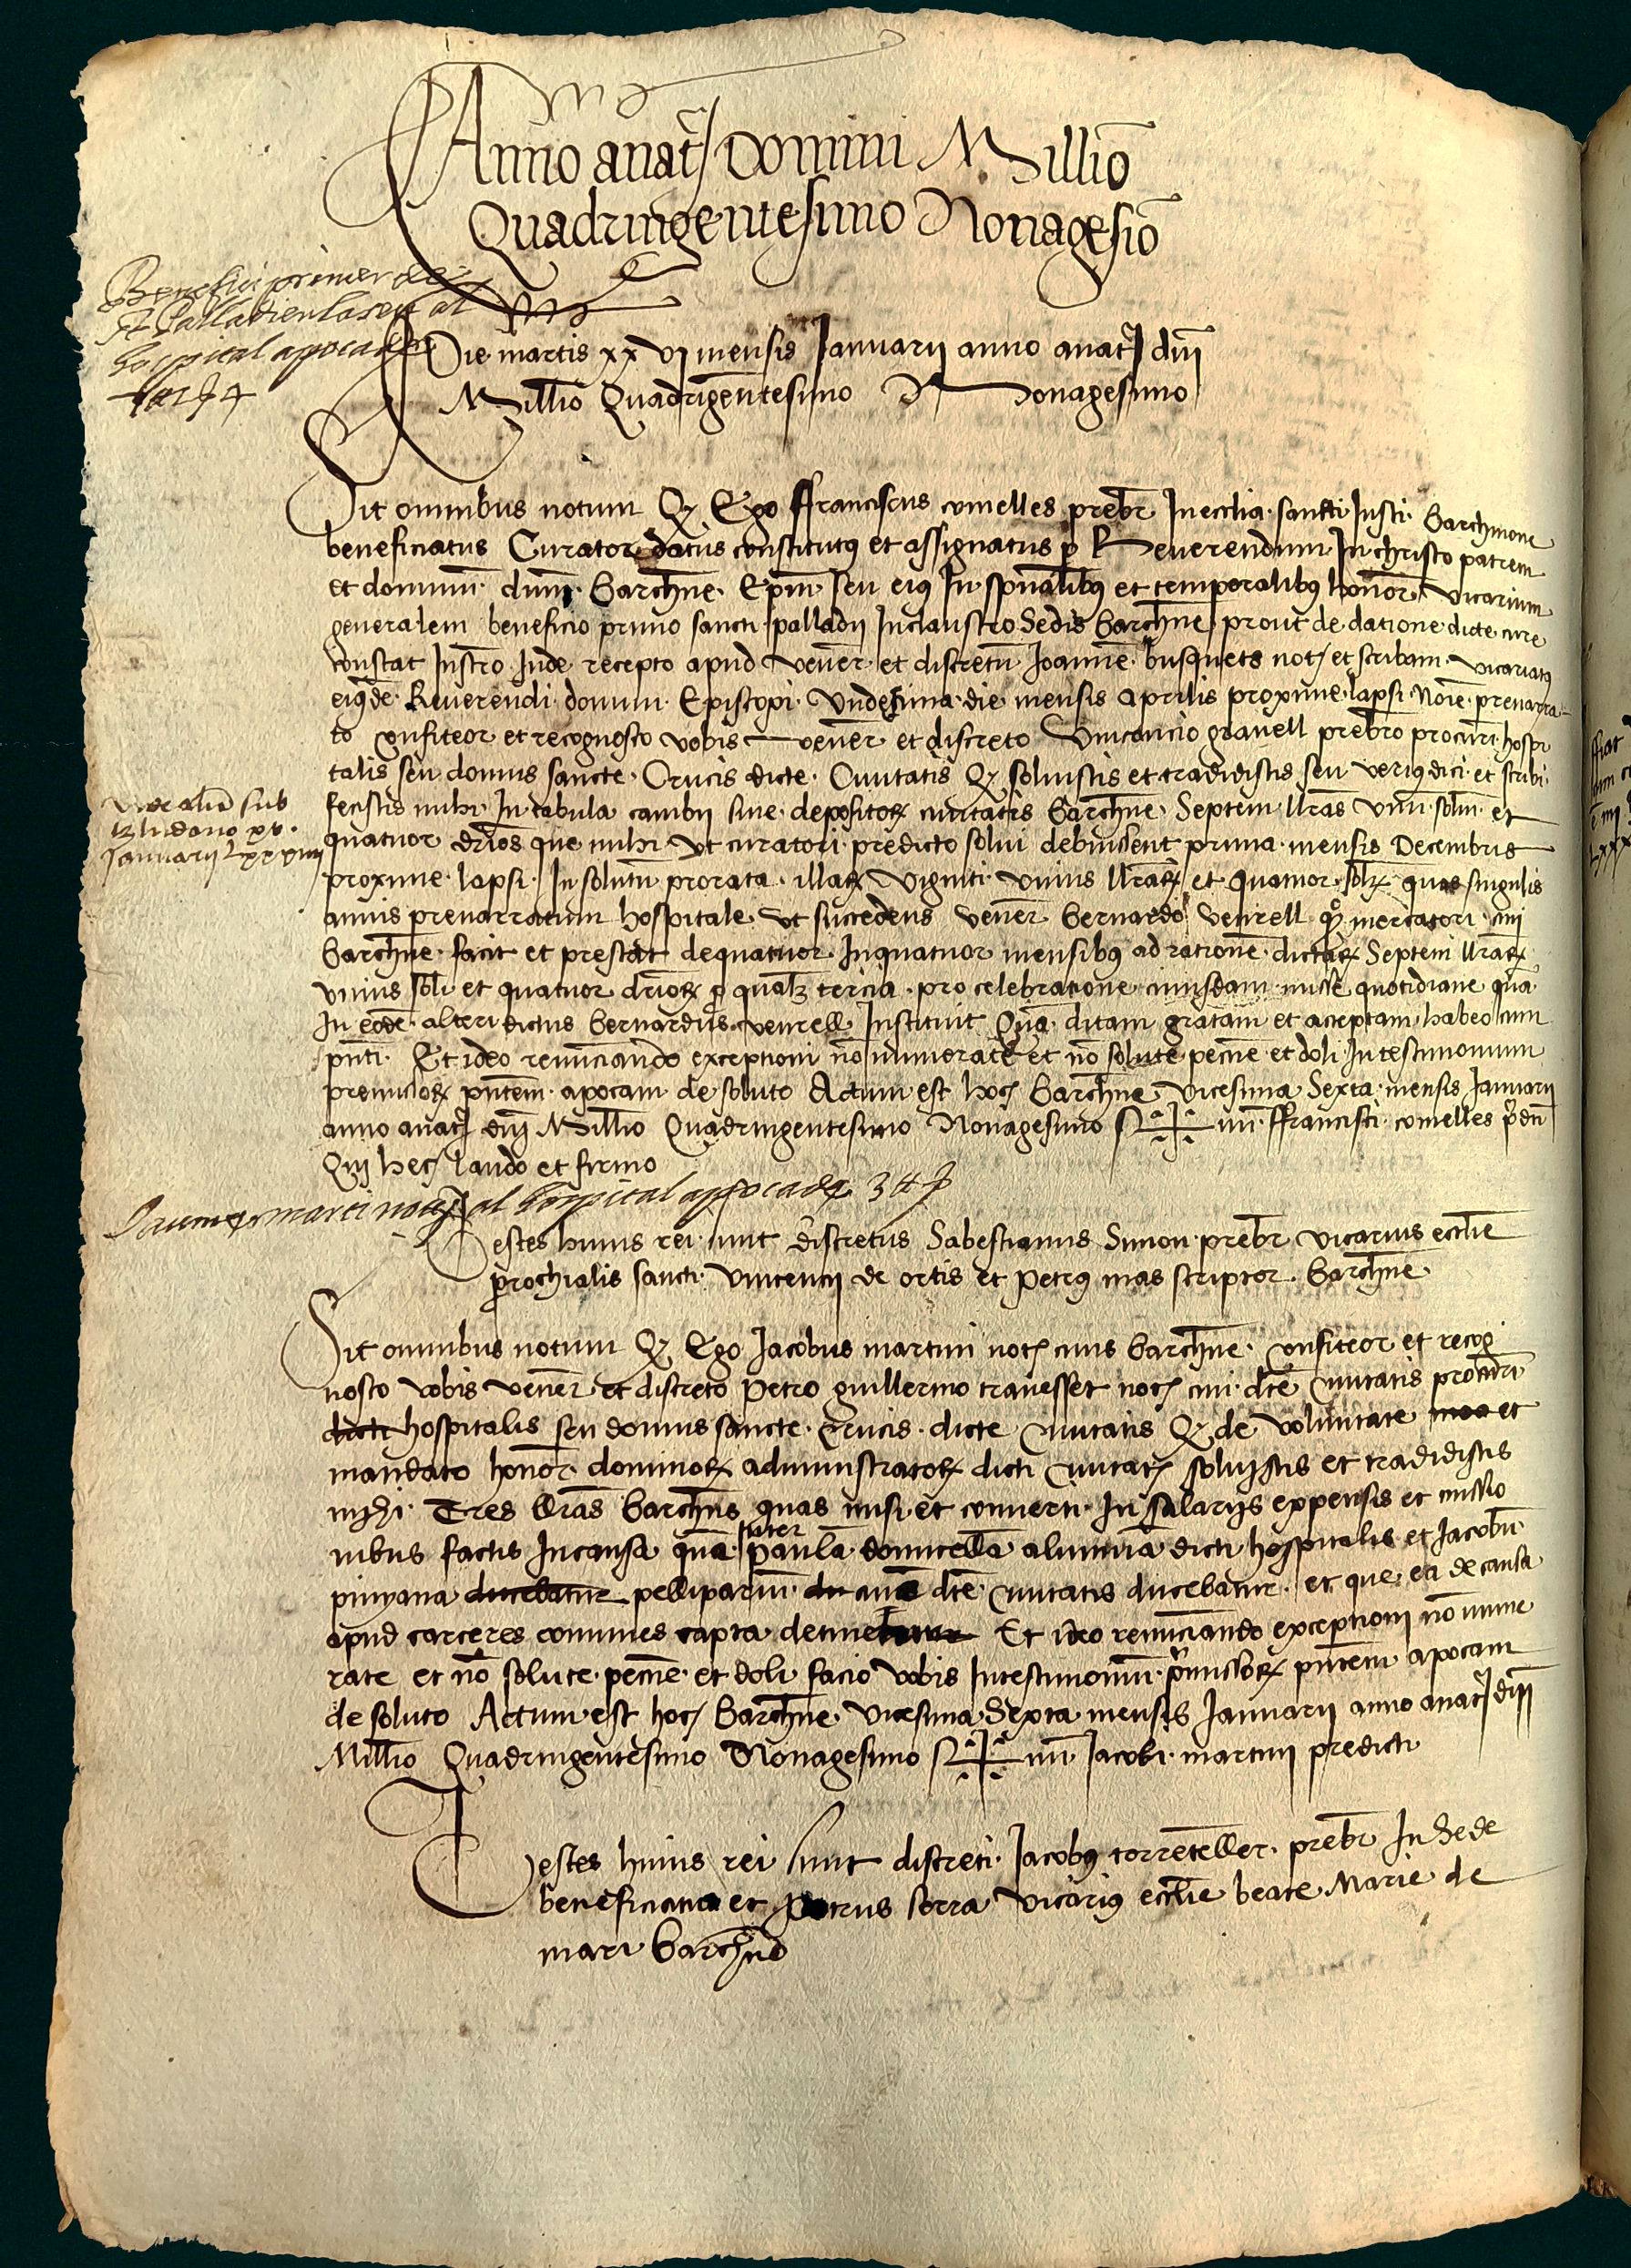 Anno anat̄ Domini Millio̅
Quadringentesimo Nonagesio̅
Benefici primer de
St Palladi en la seu al
hospital apoca de
Die martis xxvj mensis Januarii anno anat̄ dn̅i
Millio̅ Quadrigentesimo Nonagesimo
Sit omnibus notum Qz Ego ffranciscus comelles prebr̅ In ecclia sancti Justi Barchinone
beneficiatus Curator datus constitutus et assignatus p Reuerendum In christo patrem
et dominum dnm̅ Barchn̅e Epm̅ seu eius In spūalibus et temporalibus honor̅ vicarium
generalem beneficio primo sancti palladii In claustro Sedis Barchn̅e prout de datione dicte cure
constat Instr̅o Inde recepto apud vener̅ et discretu̅ Joanne̅ busquets not̅ et scribam vicariatus
eiusde̅ Reuerendi domini Episcopi Undecima die mensis Aprilis proxime lapsi Noie̅ prenarra
to confiteor et recognosco vobis vener̅ et discreto Vincencio gravell prebr̅o procuri̅ hospi
talis seu domus sancte Crucis dicte Ciuitatis Qz soluistis et tradidistis seu verius dici et scribi
fecistis mihi In tabula cambii siue depositorꝝ ciuitatis Barchn̅e Septem llra̅s vnu̅ solu̅ et
vide alia̅ sub
kalendario xv
Januarii Lxxxxiiii
quatuor dr̅ios que mihi vt curatori predicto solui debuissent prima mensis Decembris
proxime lapsi In solutu̅ prorata illarꝝ viginti vnius llra̅rꝝ et quatuor solꝝ quas singulis
annis prenarratum hospitale vt succedens vener̅ Bernardo venrell qo̅ mercatori ciui
Barchn̅e facit et prestat de quatuor In quatuor mensibus ad ratione̅ dictarꝝ Septem llra̅rꝝ
vnius soli̅ et quatuor dr̅iorꝝ p qualz tercia pro celebratione cuiusdam misse quotidiane qua̅
In eode̅ altari dictus Bernardus venrell Instituit Qua̅ ditam gratam et acceptam habeo cum
pn̅ti Et ideo renunciando exceptioni no̅ numerate et no̅ solute pecu̅ie et doli In testimonium
premissorꝝ pn̅tem apocam de soluto Actum est hoc Barchn̅e Vicesima Sexta mensis Januarii
anno anat̄ dn̅i Millio̅ Quadringentesimo Nonagesimo S✝num ffrancisci comelles p̅dci̅
Qui hec laudo et firmo
Jaume marti notj al hospital appoca de 3 ℔
Testes huius rei sunt discretus Sabestianus Simon prebr̅ vicarius ecclie̅
prochialis sancti Vincentii de ortis et Petrus mas scriptor Barchn̅e
Sit omnibus notum Qz Ego Jacobus martini not̅ ciuis Barchn̅e confiteor et recog
nosco vobis vener̅ et discreto Petro guillermo trauesset not̅ ciui dc̅e ciuitatis procuri̅
dicti hospitalis seu domus sancte Crucis dicte ciuitatis Qz de voluntate et
mandato honor̅ dominorꝝ administratorꝝ dicti ciuitat̅ soluistis et tradidistis
mihi Tres llra̅s Barchn̅s quas misi et conuerti In salariis expensis et missio
nibus factis In causa qua̅ Inter Paula̅ domicella̅ alumna̅ dicti hospitalis et Jacobu̅
pinyana ducebatur pelliparium ciue̅ dc̅e ciuitatis ducebatur et que ea de causa
apud carceres comunes capta Et ideo renunciando exceptioni no̅ nume
rate et no̅ solute pecu̅ie et doli facio vobis In testimonium p̅missorꝝ pn̅tem apocam
de soluto Actum est hoc Barchn̅e Vicesima Sexta mensis Januarii anno anat̄ dn̅i
Millio̅ Quadringentesimo Nonagesimo S✝num Jacobi martini predicti
Testes huius rei sunt discreti Jacobus torrenteller prebr̅ In Sede
beneficiatus et Petrus serra vicarius ecclie̅ beate Marie de
mari Barchn̅e